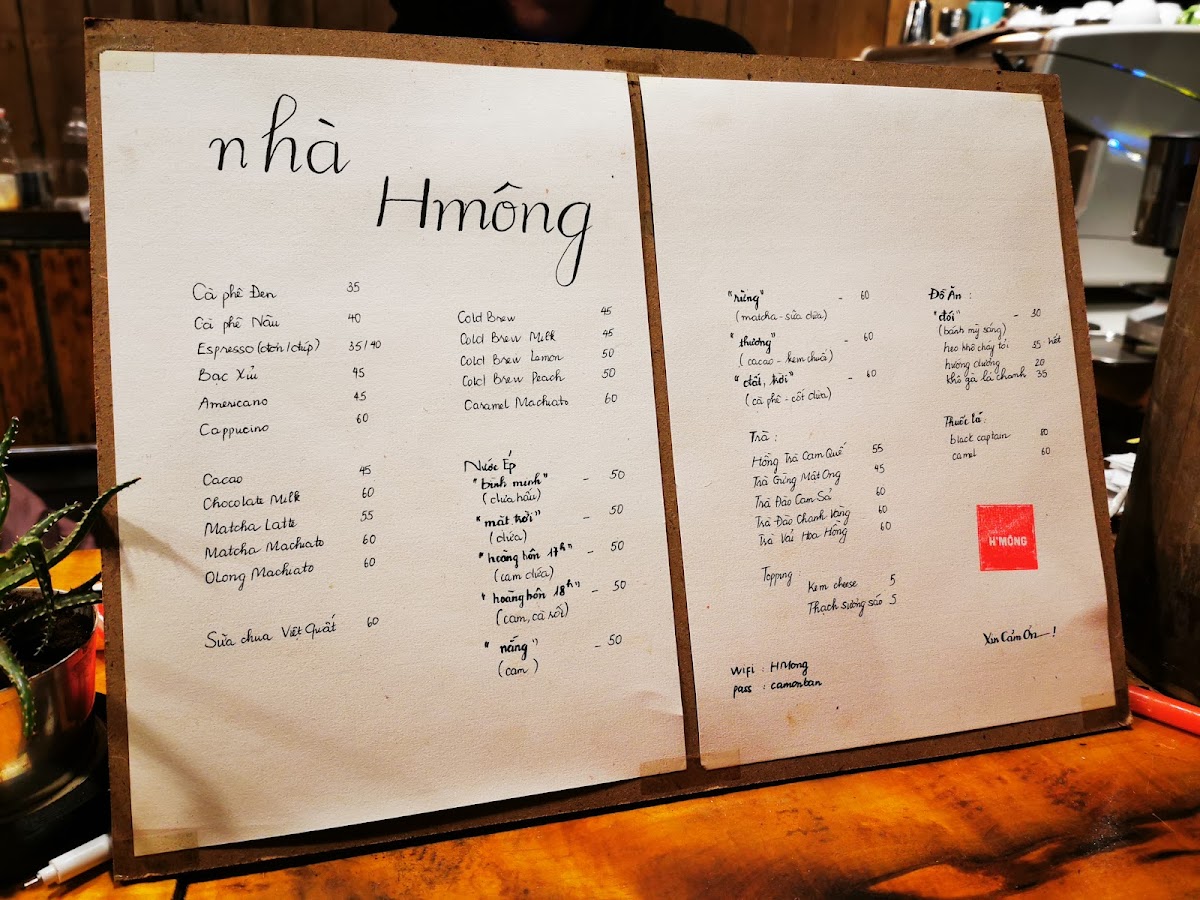 nhà
Hmông
Cà phê Đen 35
Cà phê Nâu 40
Espresso (đơn/đúp) 35/40
Bạc Xỉu 45
Americano 45
Cappucino 60
Cacao 45
Chocolate Milk 60
Matcha Latte 55
Matcha Machiato 60
OLong Machiato 60
Sữa chua Việt Quất 60
Cold Brew 45
Cold Brew Milk 45
Cold Brew Lemon 50
Cold Brew Peach 50
Caramel Machiato 60
Nước Ép
"bình minh" - 50
(dưa hấu)
"mặt trời" - 50
(dứa)
"hoàng hôn 17h" - 50
(cam dứa)
"hoàng hôn 18h" - 50
(cam, cà rốt)
"nắng" - 50
(cam)
"rừng" - 60
(matcha - sữa dừa)
"thương" - 60
(cacao - kem chuối)
"đất, trời" - 60
(cà phê - cốt dừa)
Trà :
Hồng Trà Cam Quế 55
Trà Gừng Mật Ong 45
Trà Đào Cam Sả 60
Trà Đào Chanh Vàng 60
Trà Vải Hoa Hồng 60
Topping :
Kem cheese 5
Thạch sương sáo 5
Wifi : HMong
pass : camonban
Đồ Ăn :
"đói" - 30
(bánh mỹ sáng)
heo khô cháy tỏi 55 hết
hướng dương 20
khô gà lá chanh 35
Thuốc lá :
black captain 80
camel 60
H'MÔNG
Xin Cảm Ơn !